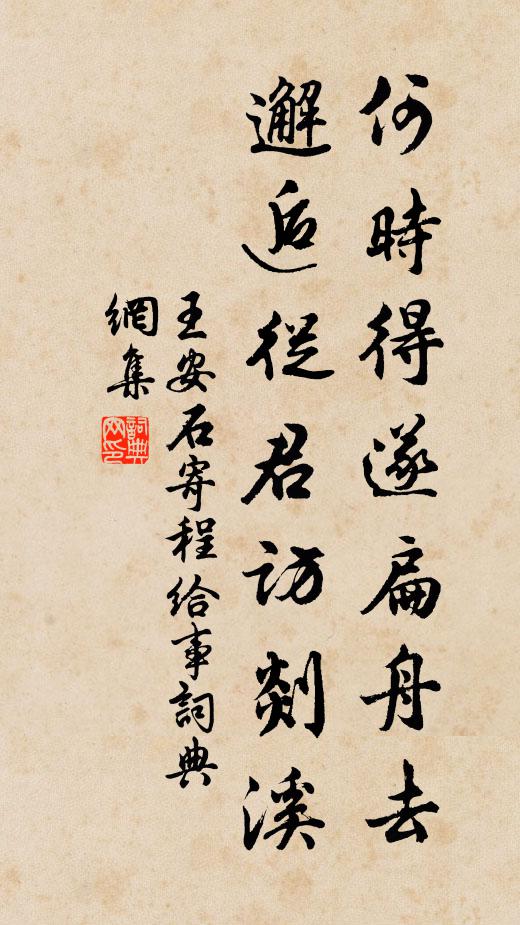 何時得遂扁舟去
邂逅從君訪剡溪
王安石寄程給事詞典
網集
詞典
网印